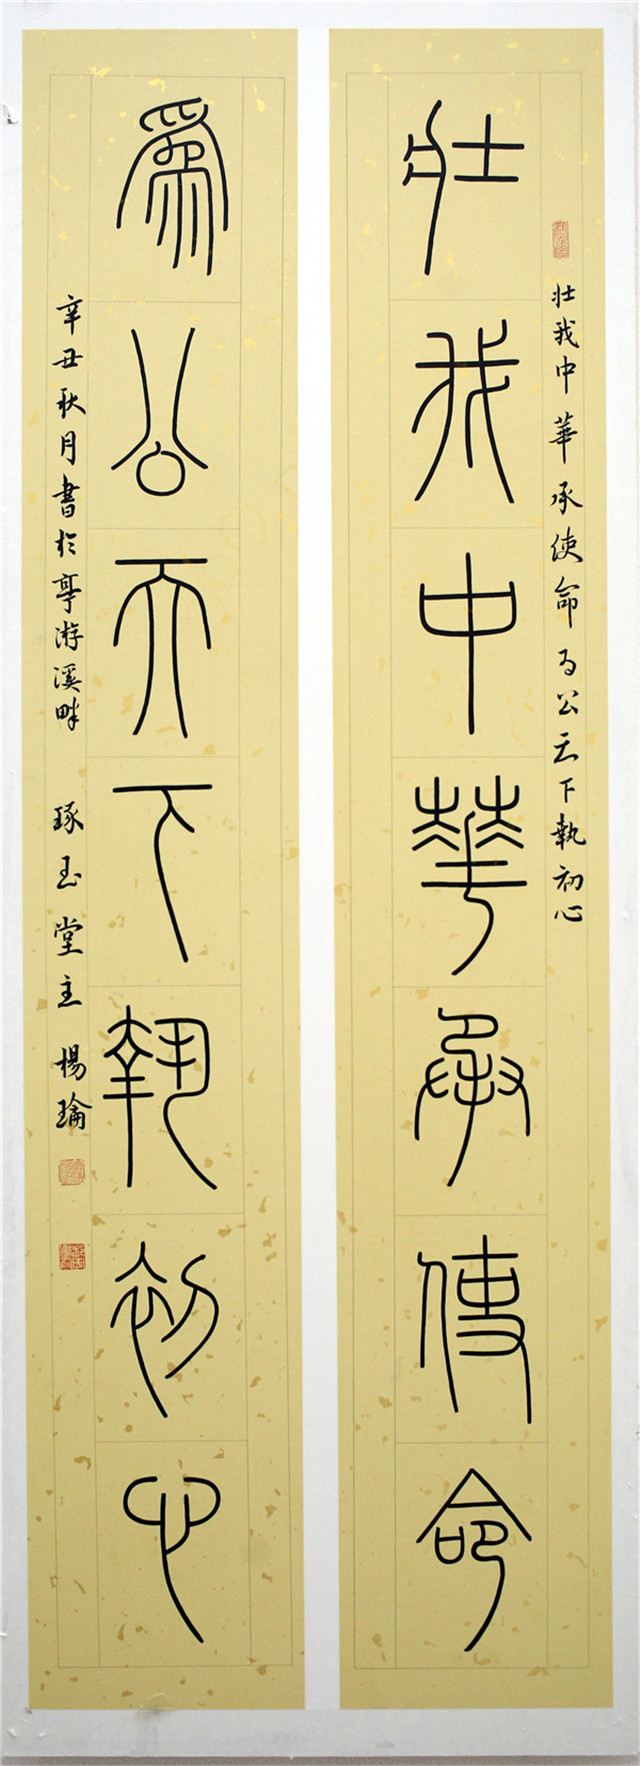 壯我中華承使命
壯我中華承使命為公天下執初心
為公天下執初心
辛丑秋月書於亭游溪畔 琢玉堂主 楊瑜